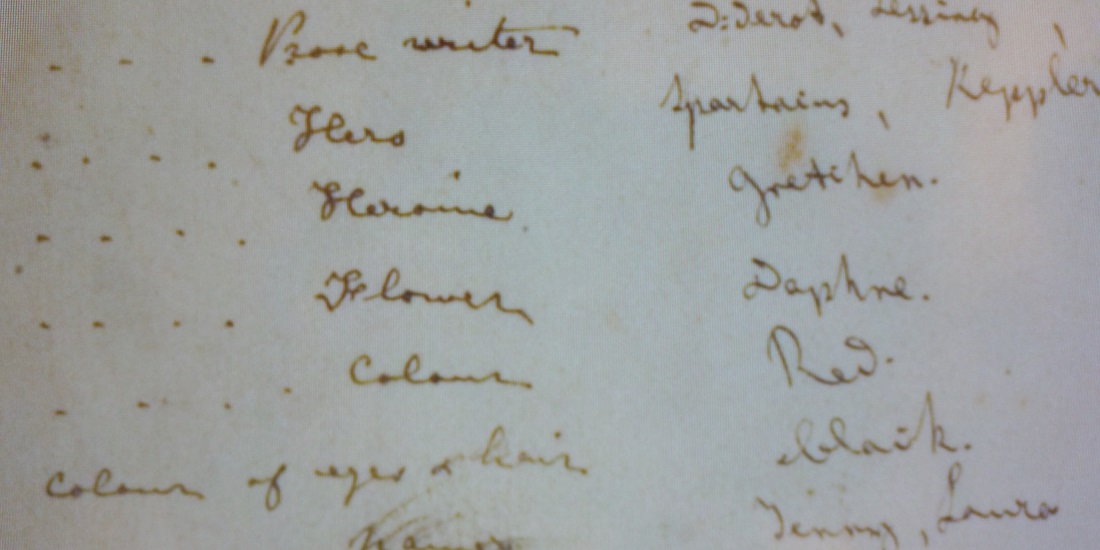 . . . Prose writer Diderot, Lessing,
. . . . Hero Spartacus, Keppler
. . . . Heroine Gretchen.
. . . . Flower Daphne.
. . . . Colour Red.
Colour of eyes & hair black.
Names Jenny, Laura